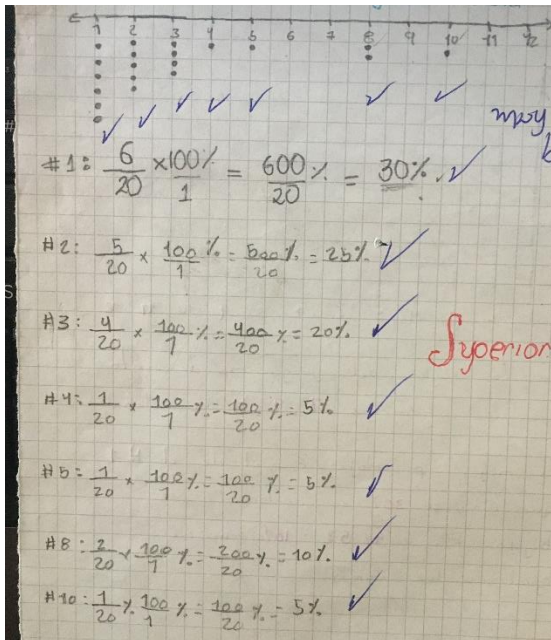 1 2 3 4 5 6 7 8 9 10 11 12
muy
#1: 6/20 × 100%/1 = 600/20 % = 30%.
#2: 5/20 × 100/1 % = 500/20 % = 25%.
#3: 4/20 × 100/1 % = 400/20 % = 20%.
Superior
#4: 1/20 × 100/1 % = 100/20 % = 5%.
#5: 1/20 × 100/1 % = 100/20 % = 5%.
#8: 2/20 × 100/1 % = 200/20 % = 10%.
#10: 1/20 % 100/1 % = 100/20 % = 5%